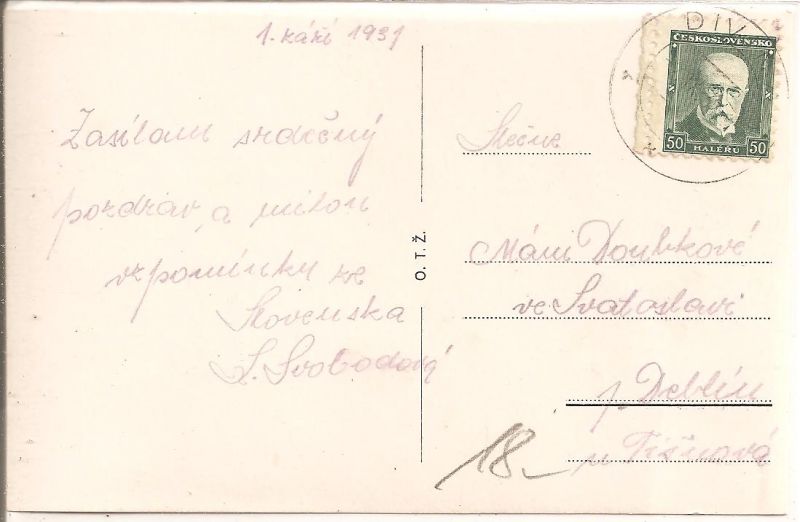 1. září 1931
Zasílám srdečný
pozdrav a milou
vzpomínku ze
Slovenska
S. Svobodová
O. T. Ž.
DIV
ČESKOSLOVENSKO
50 HALÉŘŮ 50
Slečna
Máni Doubkové
ve Svatoslavi
p. Deblín
u Tišnova
18_